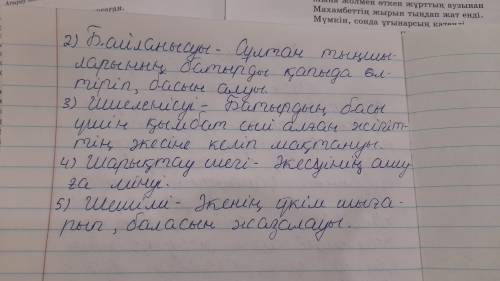 Мана жолмен өткен жұрттың аузынан
Махамбеттің жырын тыңдап жат енді.
Мүмкін, сонда ұғынарсың
2) Байланысуы - Сұлтан тыңшы-
ларының батырды қапыда өл-
тіріп, басын алуы.
3) Шиеленісуі - Батырдың басы
үшін қымбат сый алған жігіт-
тің әкесіне келіп мақтануы.
4) Шарықтау шегі - Әкесінің ашу
ға мінуі.
5) Шешімі - Әкенің үкім шыға-
рып, баласын жазалауы.